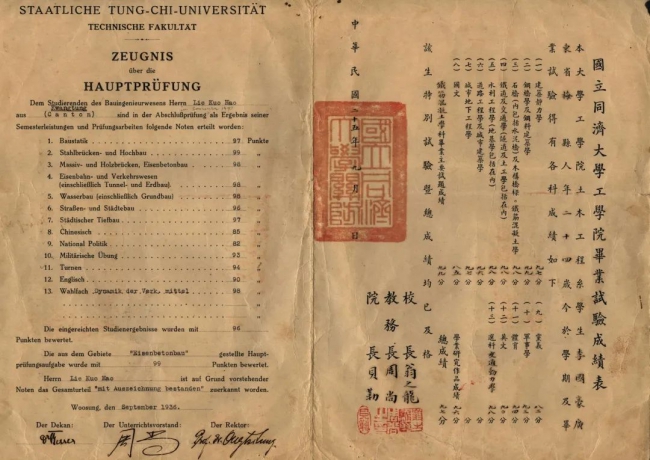 STAATLICHE TUNG-CHI-UNIVERSITÄT
TECHNISCHE FAKULTAT
ZEUGNIS
über die
HAUPTPRÜFUNG
Dem Studierenden des Bauingenieurwesens Herrn Lie Kuo Hao
Kwangtung
aus (Canton) sind in der Abschlußprüfung als Ergebnis seiner
Semesterleistungen und Prüfungsarbeiten folgende Noten erteilt worden:
1. Baustatik 97 Punkte
2. Stahlbrücken- und Hochbau 99 "
3. Massiv- und Holzbrücken, Eisenbetonbau 98 "
4. Eisenbahn- und Verkehrswesen
(einschließlich Tunnel- und Erdbau) 98 "
5. Wasserbau (einschließlich Grundbau) 98 "
6. Straßen- und Städtebau 96 "
7. Städtischer Tiefbau 97 "
8. Chinesisch 85 "
9. National Politik 82 "
10. Militärische Übung 93 "
11. Turnen 94 "
12. Englisch 90 "
13. Wahlfach Dynamik der Verk. mittel 98 "
Die eingereichten Studienergebnisse wurden mit 96
Punkten bewertet.
Die aus dem Gebiete "Eisenbetonbau" gestellte Haupt-
prüfungsaufgabe wurde mit 99 Punkten bewertet.
Herrn Lie Kuo Hao ist auf Grund vorstehender
Noten das Gesamturteil "mit Auszeichnung bestanden" zuerkannt worden.
Woosung, den September 1936.
Der Dekan: Der Unterrichtsvorstand: Der Rektor:
國立同濟大學工學院畢業試驗成績表
本大學工學院土木工程系學生李國豪廣
東省梅縣人年二十四歲今於學期及畢
業試驗得有各科成績如下
(一) 建築靜力學 九七分
(二) 鋼橋學及鋼料建築學 九九分
(三) 石橋(內包括水泥橋)及木橋橋樑、鐵筋混凝土學 九八分
(四) 鐵道及交通學(隧道及土工學包括在內) 九八分
(五) 水利工程學(地基學包括在內) 九八分
(六) 道路工程學及城市建築學 九六分
(七) 城市地下工程學 九七分
(八) 國文 八五分
(九) 黨義 八二分
(十) 軍事學 九三分
(十一) 體育 九四分
(十二) 英文 九〇分
(十三) 選科交通動力學 九八分
學業研究作品成績 九六分
鐵筋混凝土學科畢業主要試題成績 九九分
總成績
該生特別試驗暨總成績均已及格
校長翁之龍
教務長周尚
院長貝勒
中華民國二十五年九月 日